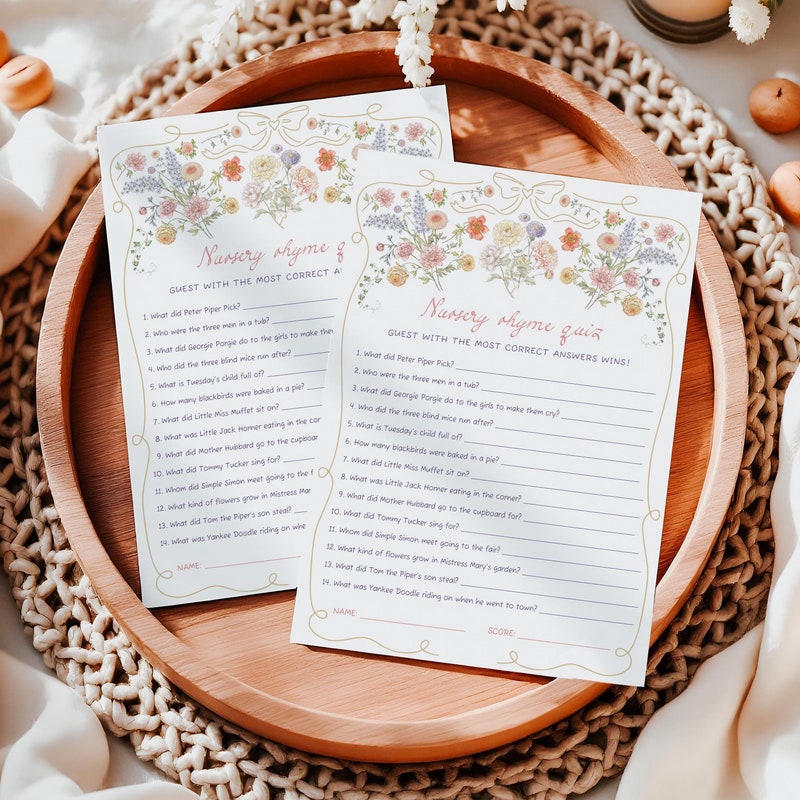 Nursery rhyme q
GUEST WITH THE MOST CORRECT A
1. What did Peter Piper Pick?
2. Who were the three men in a tub?
3. What did Georgie Porgie do to the girls to make them
4. Who did the three blind mice run after?
5. What is Tuesday's child full of?
6. How many blackbirds were baked in a pie?
7. What did Little Miss Muffet sit on?
8. What was Little Jack Horner eating in the cor
9. What did Mother Hubbard go to the cupboard
10. What did Tommy Tucker sing for?
11. Whom did Simple Simon meet going to the f
12. What kind of flowers grow in Mistress Mar
13. What did Tom the Piper's son steal?
14. What was Yankee Doodle riding on when
NAME:
Nursery rhyme quiz
GUEST WITH THE MOST CORRECT ANSWERS WINS!
1. What did Peter Piper Pick?
2. Who were the three men in a tub?
3. What did Georgie Porgie do to the girls to make them cry?
4. Who did the three blind mice run after?
5. What is Tuesday's child full of?
6. How many blackbirds were baked in a pie?
7. What did Little Miss Muffet sit on?
8. What was Little Jack Horner eating in the corner?
9. What did Mother Hubbard go to the cupboard for?
10. What did Tommy Tucker sing for?
11. Whom did Simple Simon meet going to the fair?
12. What kind of flowers grow in Mistress Mary's garden?
13. What did Tom the Piper's son steal?
14. What was Yankee Doodle riding on when he went to town?
NAME:
SCORE: